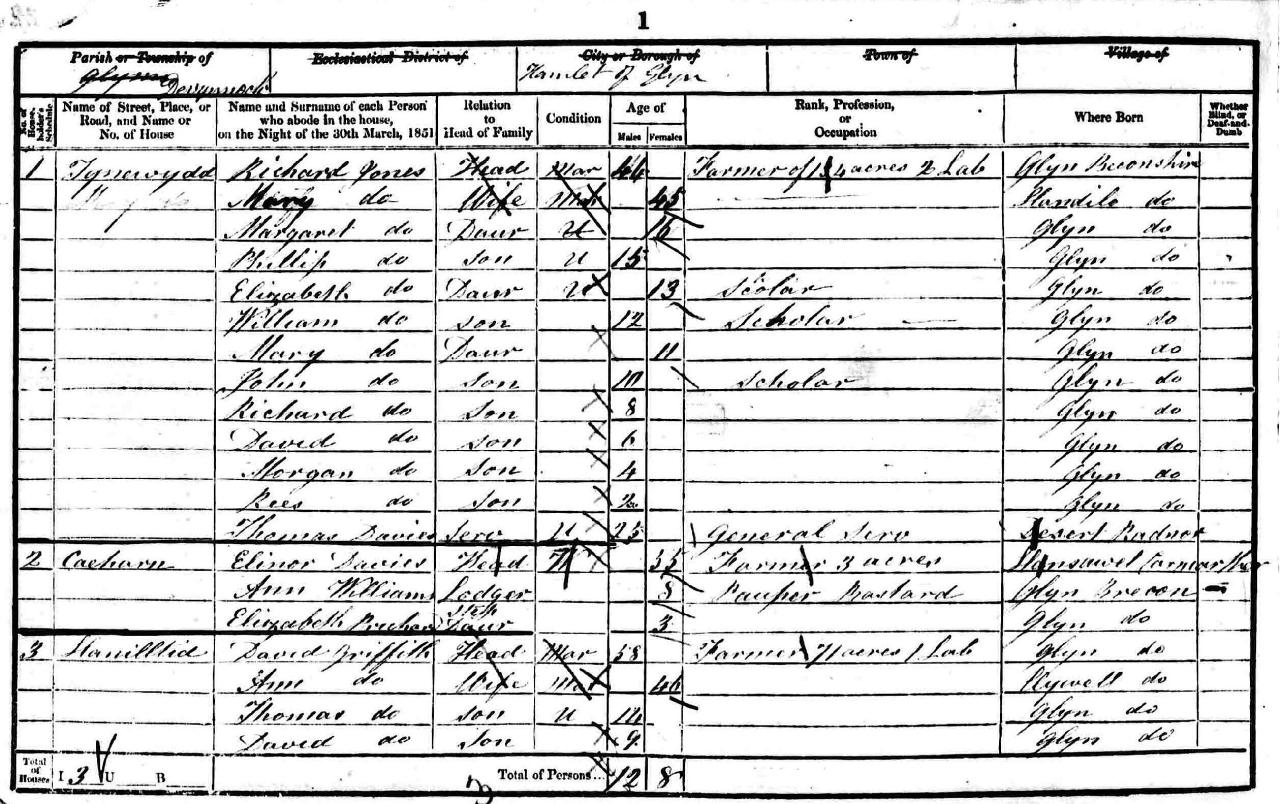 1
Parish or Township of Ecclesiastical District of City or Borough of Town of Village of
Glynn Devynnock Hamlet of Glyn
No. of Householder's Schedule Name of Street, Place, or Road, and Name or No. of House Name and Surname of each Person who abode in the house, on the Night of the 30th March, 1851 Relation to Head of Family Condition Age of Males Females Rank, Profession, or Occupation Where Born Whether Blind, or Deaf-and-Dumb
1 Tynewydd Richard Jones Head Mar 44 Farmer of 134 acres 2 Lab Glyn Breconshire
Mary do Wife Mar 45 Llandilo do
Margaret do Daur U 16 Glyn do
Phillip do Son U 15 Glyn do
Elizabeth do Daur U 13 Scolar Glyn do
William do Son 12 Scholar Glyn do
Mary do Daur 11 Glyn do
John do Son 10 Scholar Glyn do
Richard do Son 8 Glyn do
David do Son 6 Glyn do
Morgan do Son 4 Glyn do
Rees do Son 2 Glyn do
Thomas Davies Serv U 25 General Serv Desert Radnor
2 Caeharn Elinor Davies Head 55 Farmer 3 acres Llansawel
Ann Williams Lodger 8 Pauper Bastard Glyn Brecon
Elizabeth Prichard Step Daur 3 Glyn do
3 Llanilltid David Griffith Head Mar 58 Farmer 71 acres 1 Lab Glyn do
Ann do Wife Mar 46 Llywell do
Thomas do Son U 14 Glyn do
David do Son 9 Glyn do
Total of Houses I 3 U B Total of Persons... 12 8